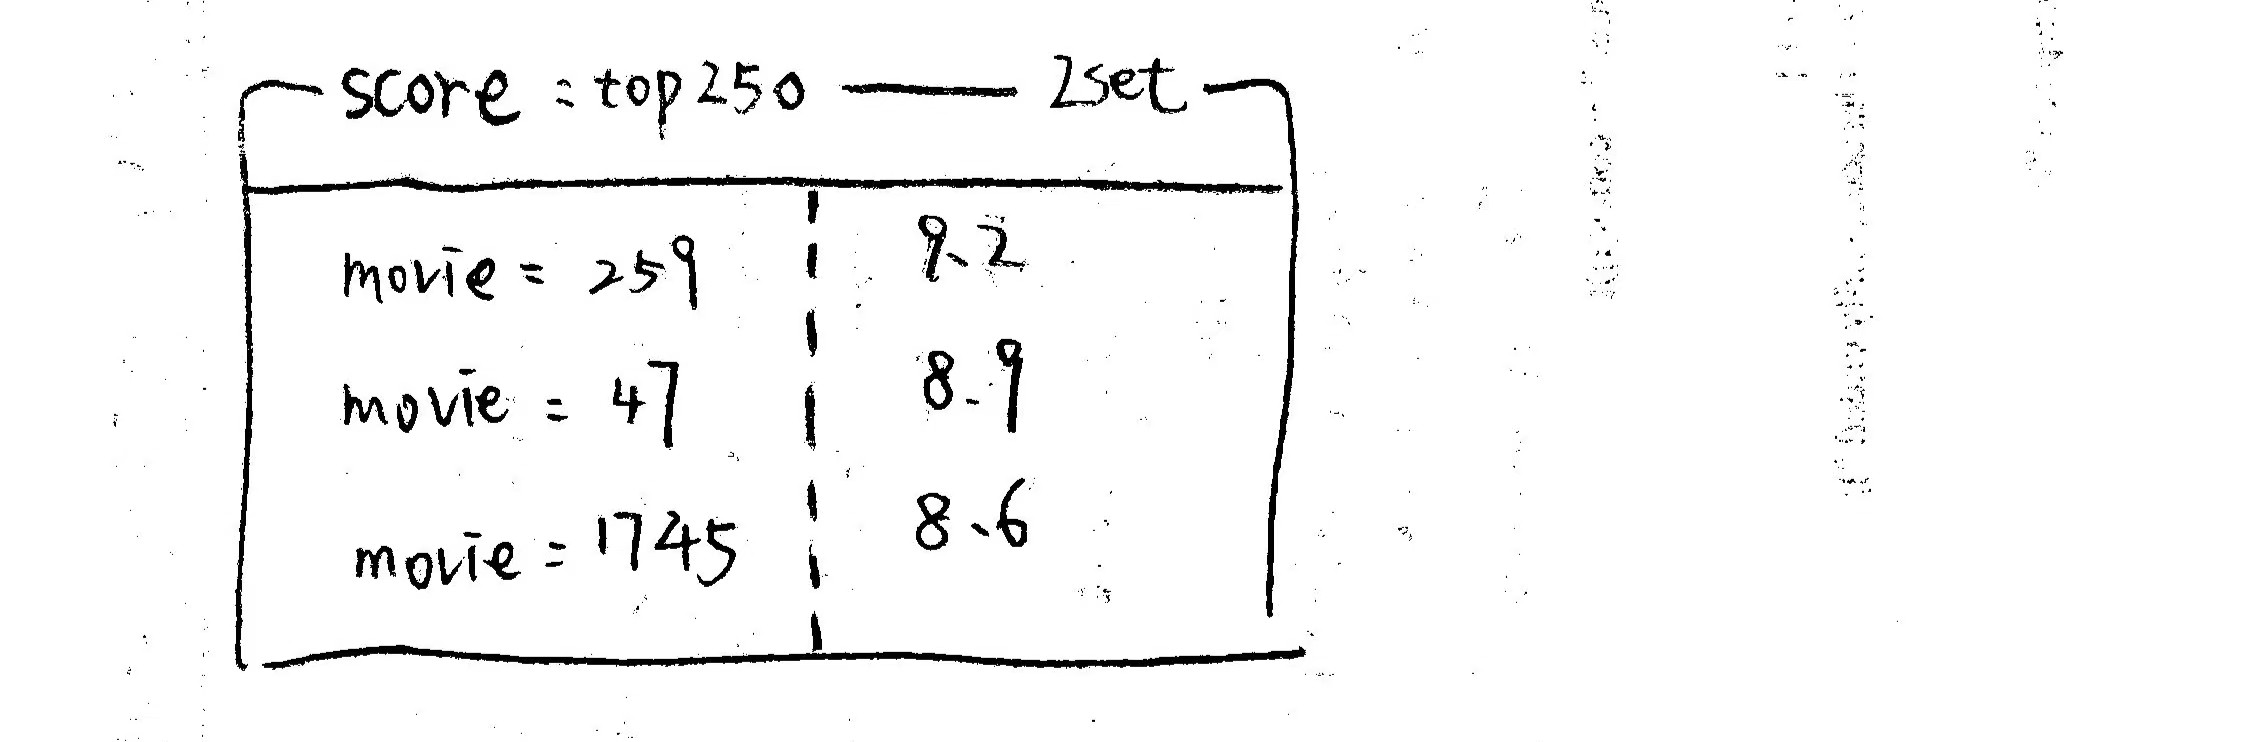 score = top250 —— Zset
movie = 259 9.2
movie = 47 8.9
movie = 1745 8.6